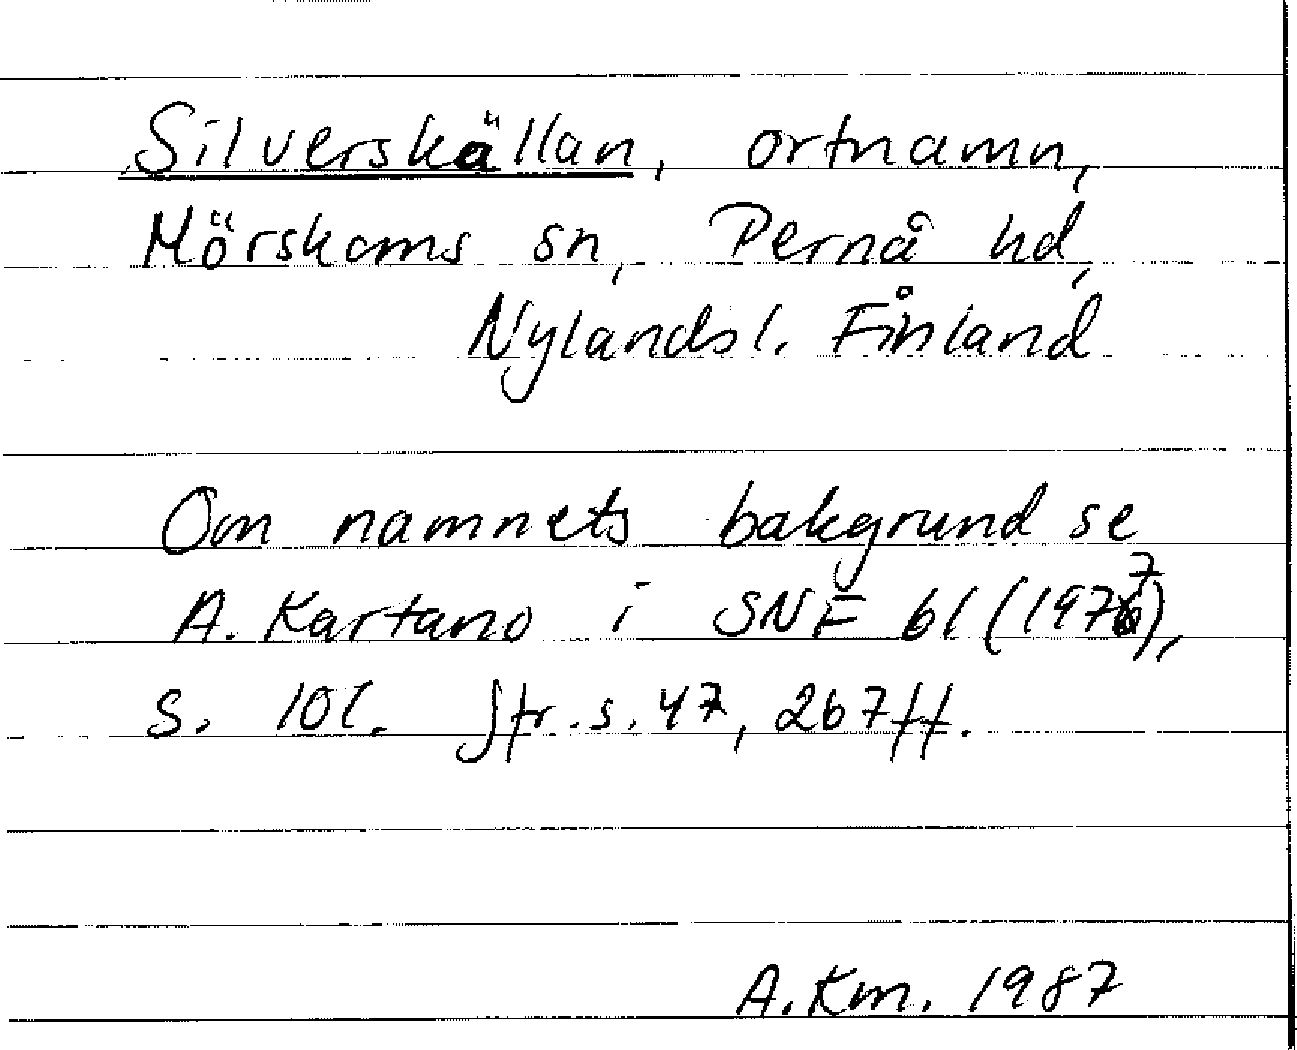 Silverskällan, ortnamn,
Mörskoms sn, Pernå hd,
Nylands l. Finland
Om namnets bakgrund se
A. Kartano i SNF 61 (1977),
s. 101. Jfr. s. 47, 267 ff.
A. Km. 1987